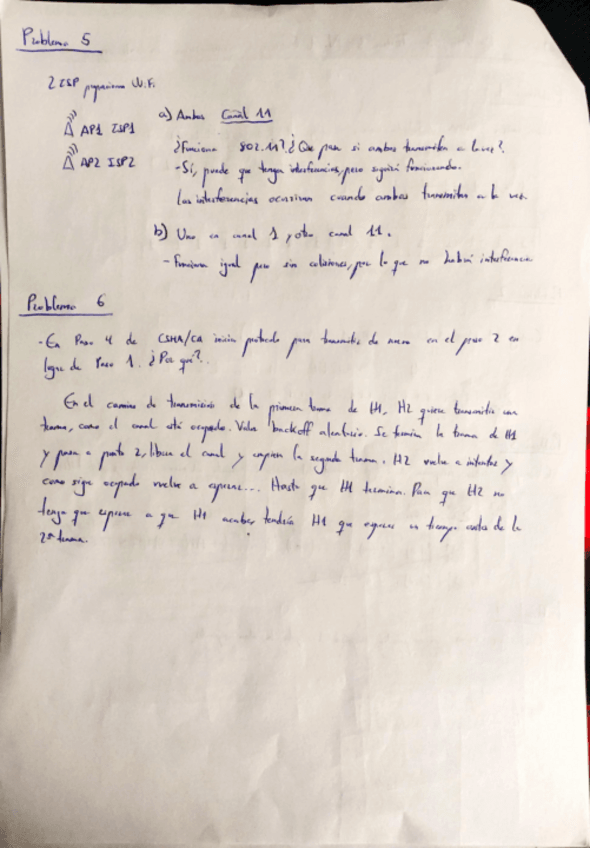 Problema 5
2 ISP proporcionan Wi-Fi
AP1 ISP1
AP2 ISP2
a) Ambos Canal 11
¿Funciona 802.11? ¿Que pasa si ambos transmiten a la vez?
- Sí, puede que tengan interferencias, pero seguirá funcionando.
Las interferencias ocasionan cuando ambas transmiten a la vez.
b) Uno en canal 1 y otro canal 11.
- Funciona igual pero sin colisiones, por lo que no habrá interferencia
Problema 6
- En Paso 4 de CSMA/CA inicia protocolo para transmitir de nuevo en el paso 2 en
lugar de Paso 1. ¿Por qué?
En el camino de transmisión de la primera trama de H1, H2 quiere transmitir una
trama, como el canal está ocupado. Valor backoff aleatorio. Se termina la trama de H1
y pasa a punto 2, libera el canal y empieza la segunda trama. H2 vuelve a intentar y
como sigue ocupado vuelve a esperar... Hasta que H1 termina. Para que H2 no
tenga que esperar a que H1 acabar tendría H1 que esperar un tiempo antes de la
2ª trama.